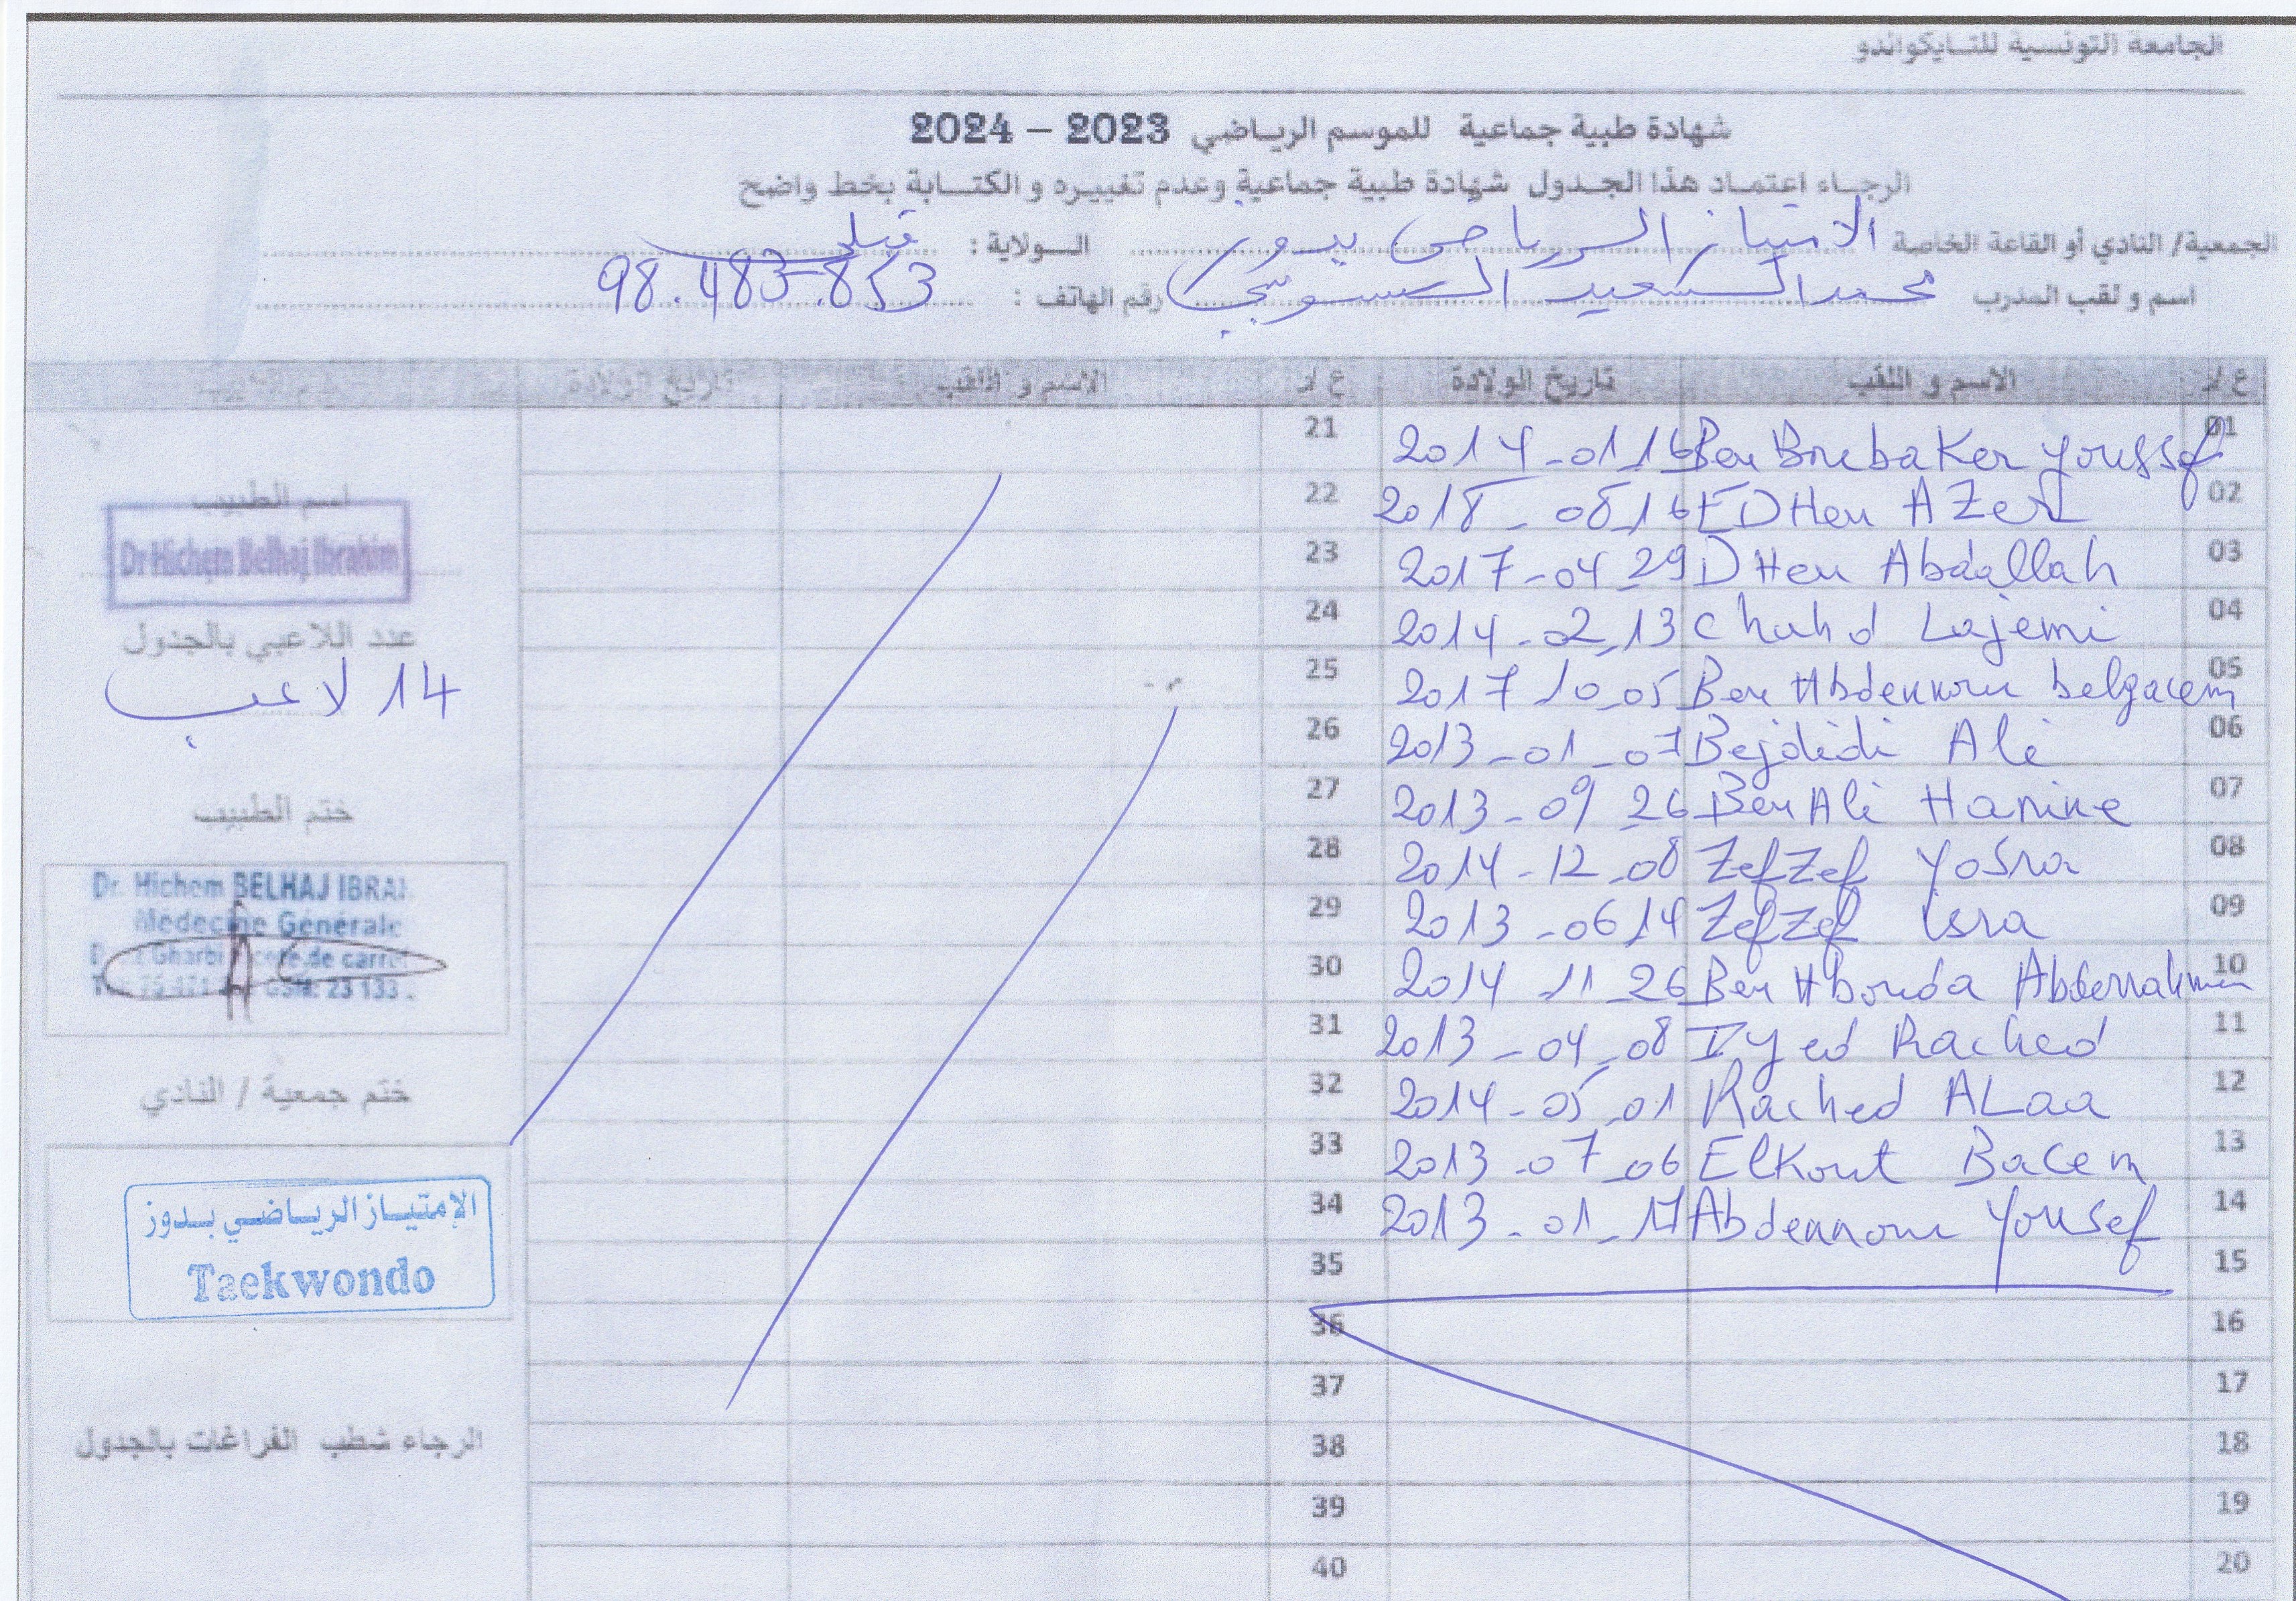 الجامعة التونسية للتايكواندو
شهادة طبية جماعية للموسم الرياضي 2023 – 2024
الرجاء اعتماد هذا الجدول شهادة طبية جماعية وعدم تغييره و الكتابة بخط واضح
الجمعية/ النادي أو القاعة الخاصة الامتياز الرياضي بدوز الولاية : قبلي
اسم و لقب المدرب محمد السعيد السوسي رقم الهاتف : 98.483.853
ع/ر الاسم و اللقب تاريخ الولادة ع/ر الاسم و اللقب تاريخ الولادة
01 Ben Boubaker Youssef 2014-01-16 21
02 EDHen AZer 2018-08-16 22
03 DHen Abdallah 2017-04-29 23
04 Chahd Lajemi 2014-02-13 24
05 Ben Abdennour belgacem 2017-10-05 25
06 Bejdidi Ali 2013-01-07 26
07 Ben Ali Hanine 2013-09-26 27
08 ZefZef Yosra 2014-12-08 28
09 ZefZef isra 2013-06-14 29
10 Ben Abouda Abderrahmen 2014-11-26 30
11 Iyed Rached 2013-04-08 31
12 Rached ALaa 2014-05-01 32
13 ElKout Bacem 2013-07-06 33
14 Abdennour Yousef 2013-01-17 34
15 35
16 36
17 37
18 38
19 39
20 40
اسم الطبيب
Dr Hichem Belhaj Ibrahim
عدد اللاعبي بالجدول
14 لاعب
ختم الطبيب
Dr. Hichem BELHAJ IBRAH
Médecine Générale
Gharbi de carre
GSM: 23 133
ختم جمعية / النادي
الإمتياز الرياضي بدوز
Taekwondo
الرجاء شطب الفراغات بالجدول